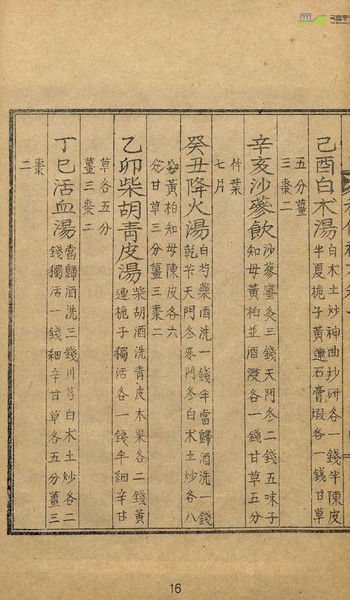 己酉白朮湯
白朮土炒神曲炒硏各一錢半陳皮
半夏梔子黃蓮石膏煆各一錢甘草
五分薑
三棗二
辛亥沙蔘飮
沙蔘蜜灸三錢天門冬二錢五味子
知母黃柏並酒浸各一錢甘草五分
竹葉
七片
癸丑降火湯
白芍藥酒洗一錢半當歸酒洗一錢
乾芐天門冬麥門冬白朮土炒各八
分黃柏知母陳皮各六
分甘草三分薑三棗二
乙卯柴胡靑皮湯
柴胡酒洗靑皮木果各二錢黃
連梔子獨活各一錢半細辛甘
草各五分
薑三棗二
丁巳活血湯
當歸酒洗三錢川芎白朮土炒各二
錢獨活一錢細辛甘草各五分薑三
棗
二
16